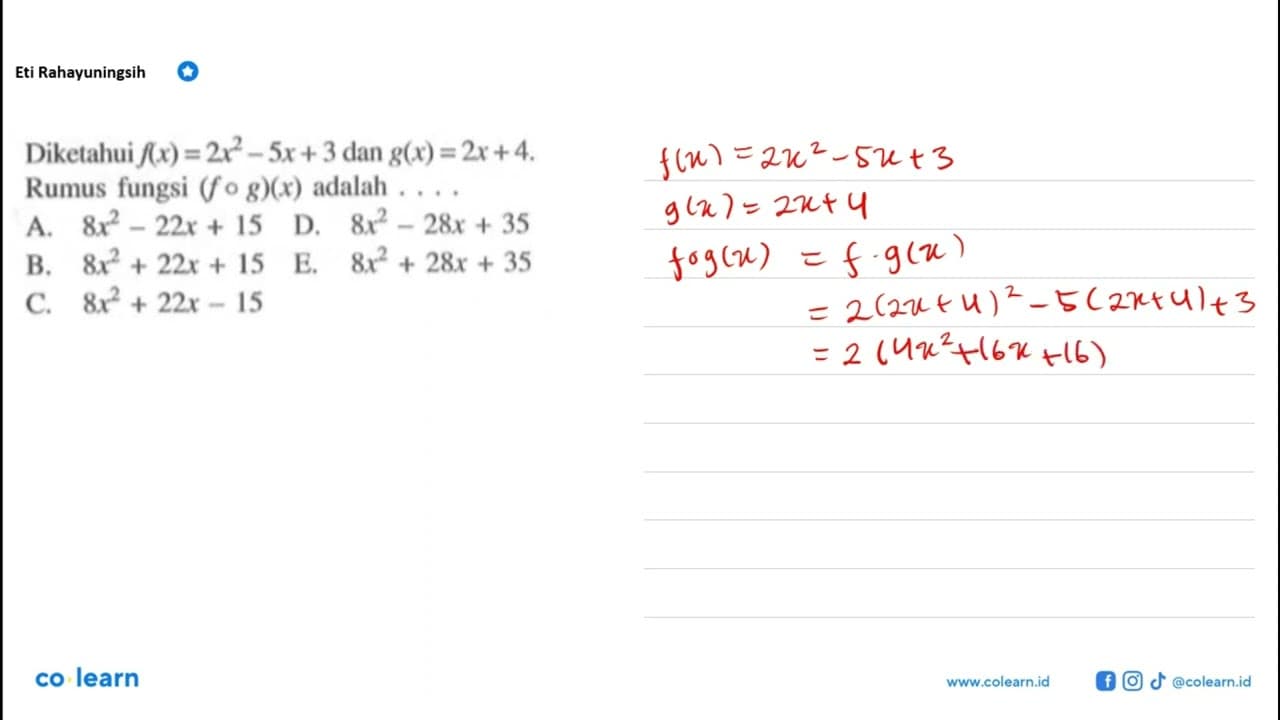 Eti Rahayuningsih
Diketahui f(x) = 2x² – 5x + 3 dan g(x) = 2x + 4.
Rumus fungsi (f ∘ g)(x) adalah . . . .
A. 8x² – 22x + 15 D. 8x² – 28x + 35
B. 8x² + 22x + 15 E. 8x² + 28x + 35
C. 8x² + 22x – 15
f(x) = 2x² – 5x + 3
g(x) = 2x + 4
fog(x) = f · g(x)
= 2(2x + 4)² – 5(2x + 4) + 3
= 2 (4x² + 16x + 16)
co learn
www.colearn.id @colearn.id